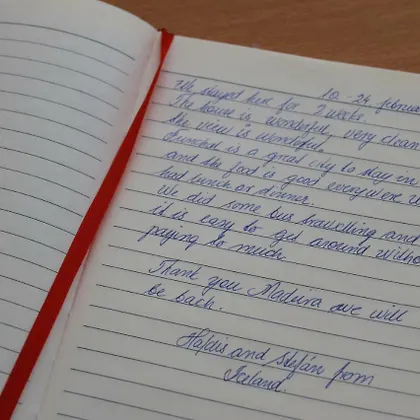 10 - 24 februa
We stayed here for 2 weeks.
The house is wonderful, very clean
the view is wonderful.
Funchal is a great city to stay in
and the food is good everywere w
had lunch or dinner.
We did some bus travelling and
it is easy to get around witho
paying to much
Thank you Madeira we will
be back.
and Stefán from
Iceland.